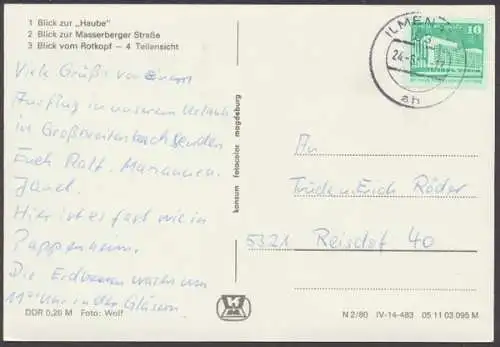 1 Blick zur „Haube"
2 Blick zur Masserberger Straße
3 Blick vom Rotkopf – 4 Teilansicht
Viele Grüße von einem
Ausflug in unserem Urlaub
in Großbreitenbach senden
Euch Ralf, Marianne u.
Hier ist es fast wie in
Pappenheim.
Die Erdbeeren waren um
11⁰⁰ Uhr in den Gläsern.
DDR 0,20 M Foto: Wolf
konsum fotocolor magdeburg
ILMEN
24-6
ah
10
An
Trude u. Erich Röder
5321 Reisdorf 40
N 2/80 IV-14-483 05 11 03 095 M